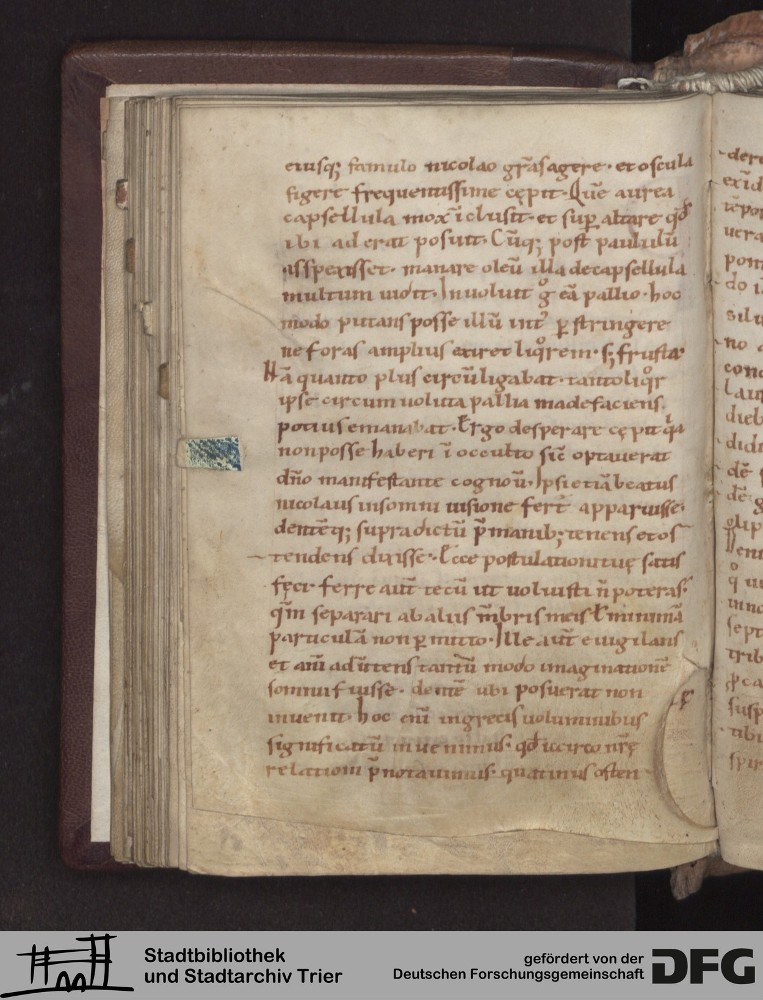 eiusq; famulo nicolao grãs agere· et oscula
figere frequentissime cępit· Quẽ aurea
capsellula mox ĩclusit· et sup altare qđ
ibi aderat posuit· Cũq; post paululũ
asspexisset· manare oleũ illa de capsellula
multum uidit· Inuoluit g eã pallio· hoc
modo putans posse illũ int pstringere
ne foras amplius exiret liqorem· s; frusta
Nã quanto plus circũligabat· tanto liqor
ipse circum uoluta pallia madefaciens·
potius emanabat· Ergo desperare cępit qa
non posse haberi ĩ occulto sic̃ optauerat
dño manifestante cognou̅· Ipse etiã beatus
nicolaus in somni uisione fert̃ apparuisse·
dentẽq; supradictũ p̃ manib; tenens et os
tendens dixisse· Ecce postulationi tuę satis
fęci· ferre aut̃ tecũ ut uoluisti ñ poteras·
qm̃ separari ab aliis m̃bris meis ł minimã
particulã non pmitto· Ille aut̃ euigilans
et añi aduertens tantũ modo imaginationẽ
somnii fuisse· dentẽ ubi posuerat non
inuenit· hoc eni̅ in grecis uoluminibus
significatũ inuenimus· qđ iccirco nrę
relationi p̃notauimus· quatinus osten
Stadtbibliothek
und Stadtarchiv Trier
gefördert von der
Deutschen Forschungsgemeinschaft
DFG